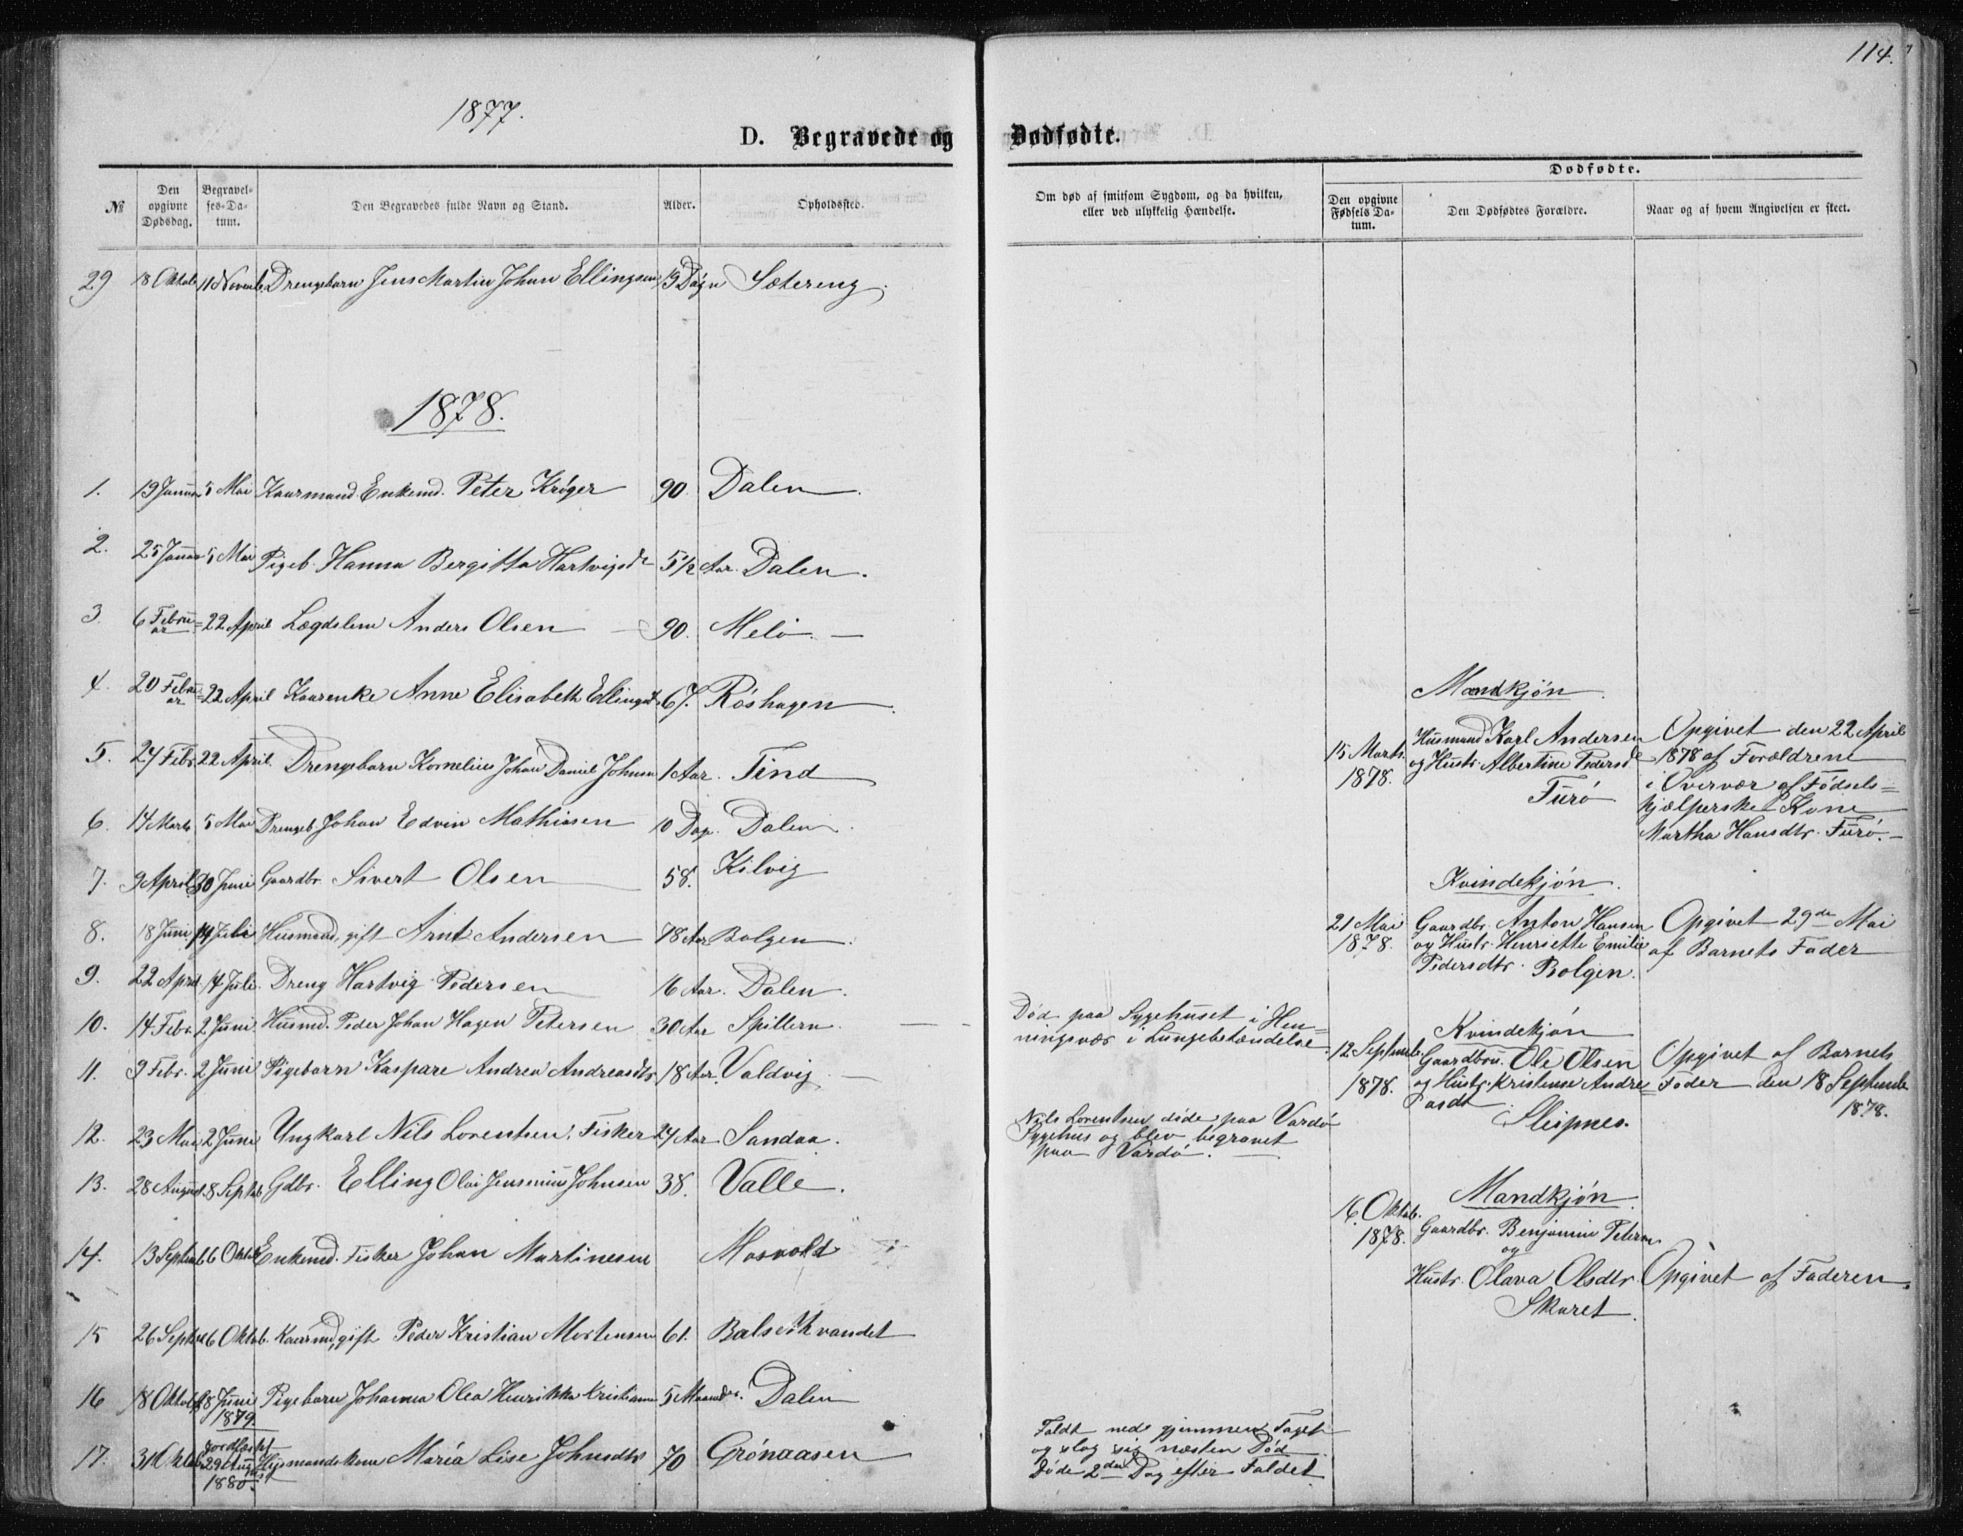 114.
1877.
D. Begravede og Dødfødte.
№
Den opgivne Dødsdag.
Begravelses-Datum.
Den Begravedes fulde Navn og Stand.
Alder.
Opholdssted.
Om død af smitsom Sygdom, og da hvilken, eller ved ulykkelig Hændelse.
Dødfødte.
Den opgivne Fødsels Datum.
Den Dødfødtes Forældre.
Naar og af hvem Angivelsen er skeet.
29 18 Oktob 11 Novemb. Drengebarn Jens Martin Johan Ellingsen 19 Døgn Sætereng.
1878.
1. 19 Januar 5 Mai Kaarmand Enkemd. Peter Krøger 90. Dalen.
2. 25 Januar 5 Mai Pigeb. Hanna Bergitta Hartvigsdr 5½ Aar. Dalen.
3. 6 Februar 22 April Lægdslem Anders Olsen 90. Melö.
4. 20 Februar 22 April Kaarenke Anne Elisabeth Ellingsd. 67. Röshagen
5. 27 Febr. 22 April. Drengebarn Kornelius Johan Daniel Johnsen 1 Aar. Tind
6. 14 Marts 5 Mai Drengeb Johan Edvin Mathiasen 10 Dag. Dalen.
7. 9 April 30 Juni Gaardbr. Sivert Olsen 58. Kilvig
8. 18 Juni 14 Juli Husmand, gift Arnt Andersen 78 Aar Bolgen.
9. 22 April 14 Juli. Dreng Hartvig Pedersen 16 Aar. Dalen.
10. 14 Febr. 2 Juni Husmd. Peder Johan Hagen Petersen 30 Aar Spillern.
11. 9 Febr. 2 Juni Pigebarn Kaspare Andrea Andreasdtr. 18 Aar. Valdvig
12. 23 Mai 2 Juni Ungkarl Nils Lorentsen, Fisker 24 Aar Sandaa.
13. 28 August 8 Septbr. Gdbr. Elling Olai Jensenius Johnsen 38. Valle.
14. 13 Septemb 6 Oktob Enkemd. Fisker Johan Martinesen Mosvold
15 26 Septbr 6 Oktob. Kaarmd, gift Peder Kristian Mortensen 61. Balsetkvandet
16 18 Oktob 8 Juni 1879. Pigebarn Johanna Olea Henrikka Kristians 5 Maaneder. Dalen
17. 31 Oktob jordfæstet 29 1880. Husmandskone Maria Lise Johnsdtr 70 Grönaasen
Död paa Sygehuset i Hen-
ningsvær i Lungebetændelse
Nils Lorentsen döde paa Vardö
Sygehus og blev begravet
paa Vardö.
Faldt ned gjennem Taget
og slog sig næsten Död
Döde 2den Dag efter Faldet
Mandkjön.
15 Marts 1878.
Husmand Karl Andersen
og Hustr Albertine Pedersd
Furö
Opgivet den 22 April
1878 af Forældrene
i Overvær af Födsels-
hjælperske Kone
Martha Hansdtr. Furö.
Kvindekjön.
21 Mai 1878.
Gaardbr. Anton Hansen
og Hustr. Henriette Emilie
Pedersdtr. Bolgen.
Opgivet 29de Mai
af Barnets Fader
Kvindekjön
12 Septemb. 1878.
Gaardbru. Ole Olsen
og Hustr. Kristense Andre-
asdt
Sleipnes.
Opgivet af Barnets
Fader den 18 Septemb
1878.
Mandkjön.
16. Oktob. 1878.
Gaardbr. Benjamin Petersen
og
Hustr. Olava Olsdtr.
Skaret.
Opgivet af Faderen.